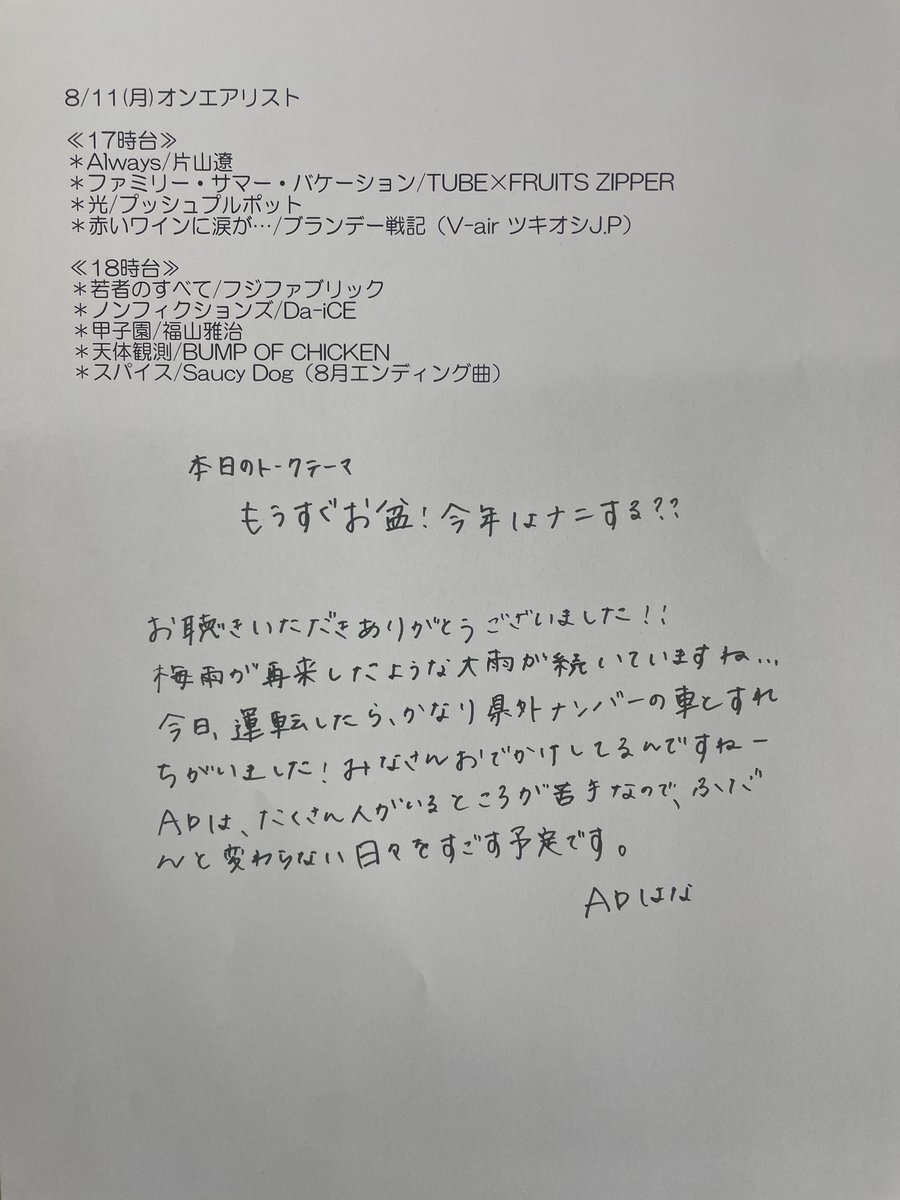 8/11(月)オンエアリスト
≪17時台≫
＊Always/片山遼
＊ファミリー・サマー・バケーション/TUBE×FRUITS ZIPPER
＊光/プッシュプルポット
＊赤いワインに涙が…/ブランデー戦記（V-air ツキオシJ.P）
≪18時台≫
＊若者のすべて/フジファブリック
＊ノンフィクションズ/Da-iCE
＊甲子園/福山雅治
＊天体観測/BUMP OF CHICKEN
＊スパイス/Saucy Dog（8月エンディング曲）
本日のトークテーマ
もうすぐお盆！今年はナニする??
お聴きいただきありがとうございました！！
梅雨が再来したような大雨が続いていますね…
今日、運転したら、かなり県外ナンバーの車とすれ
ちがいました！みなさんおでかけしてるんですねー
ADは、たくさん人がいるところが苦手なので、ふだ
んと変わらない日々をすごす予定です。
ADはな